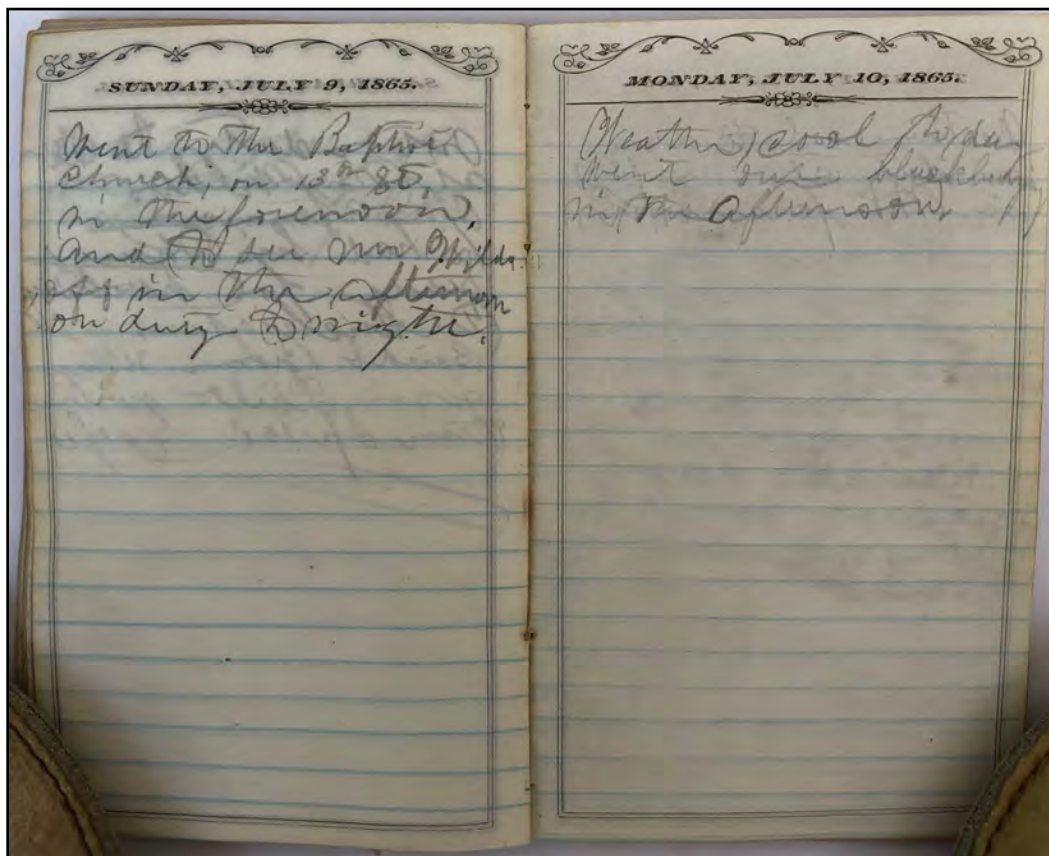 SUNDAY, JULY 9, 1865.
Went to the Baptist
Church, on 13th St,
in the forenoon,
and to see
off in the afternoon
on duty to night.
MONDAY, JULY 10, 1865.
Weather cool to day
went
in the afternoon,